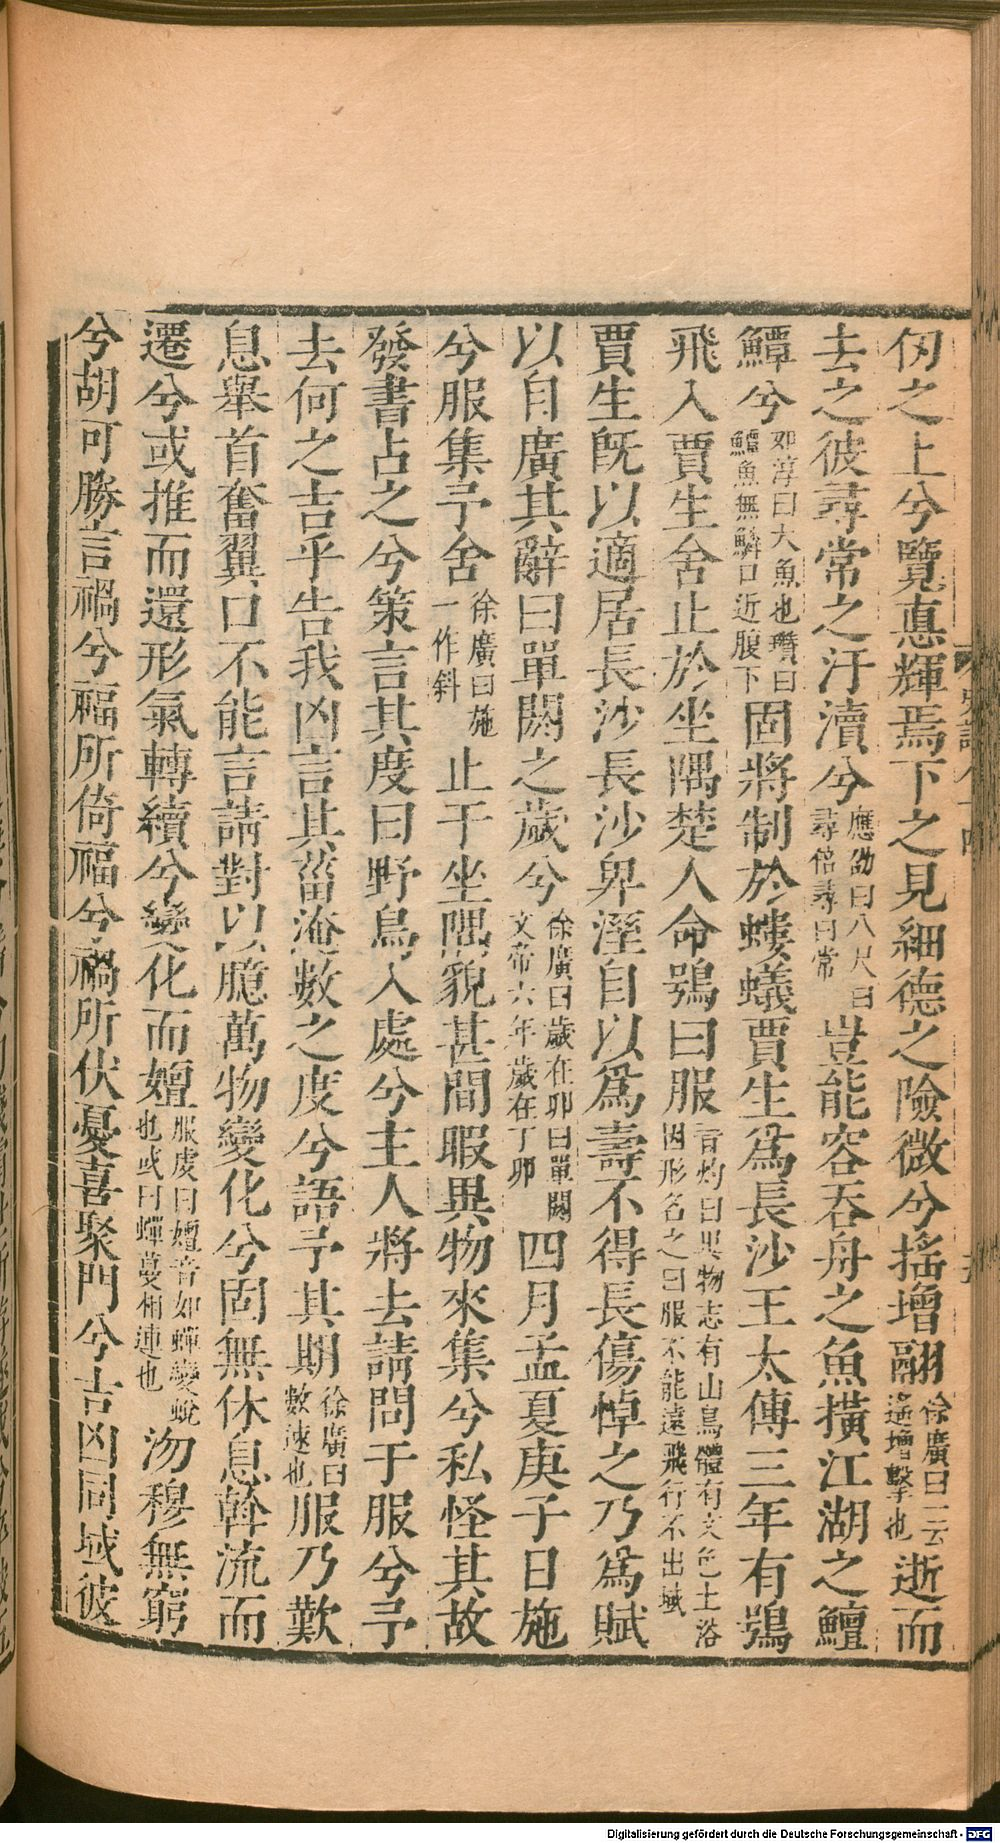 仞之上兮覽悳輝焉下之見細德之險微兮搖增翮徐廣曰一云遙增擊也逝而
去之彼尋常之汙瀆兮應劭曰八尺曰尋倍尋曰常豈能容吞舟之魚橫江湖之鱣
鱏兮如淳曰大魚也瓚曰鱣魚無鱗口近腹下固將制於螻蟻賈生爲長沙王太傅三年有鴞
飛入賈生舍止於坐隅楚人命鴞曰服晉灼曰異物志有山鳥體有文色土浴因形名之曰服不能遠飛行不出域
賈生旣以適居長沙長沙卑溼自以爲壽不得長傷悼之乃爲賦
以自廣其辭曰單閼之歲兮徐廣曰歲在卯曰單閼文帝六年歲在丁卯四月孟夏庚子日施
兮服集予舍徐廣曰施一作斜止于坐隅貌甚閒暇異物來集兮私怪其故
發書占之兮策言其度曰野鳥入處兮主人將去請問于服兮予
去何之吉乎告我凶言其菑淹數之度兮語予其期徐廣曰數速也服乃歎
息舉首奮翼口不能言請對以臆萬物變化兮固無休息斡流而
遷兮或推而還形氣轉續兮變化而嬗服虔曰嬗音如蟬變蛻也或曰蟬蔓相連也沕穆無窮
兮胡可勝言禍兮福所倚福兮禍所伏憂喜聚門兮吉凶同域彼
Digitalisierung gefördert durch die Deutsche Forschungsgemeinschaft - DFG